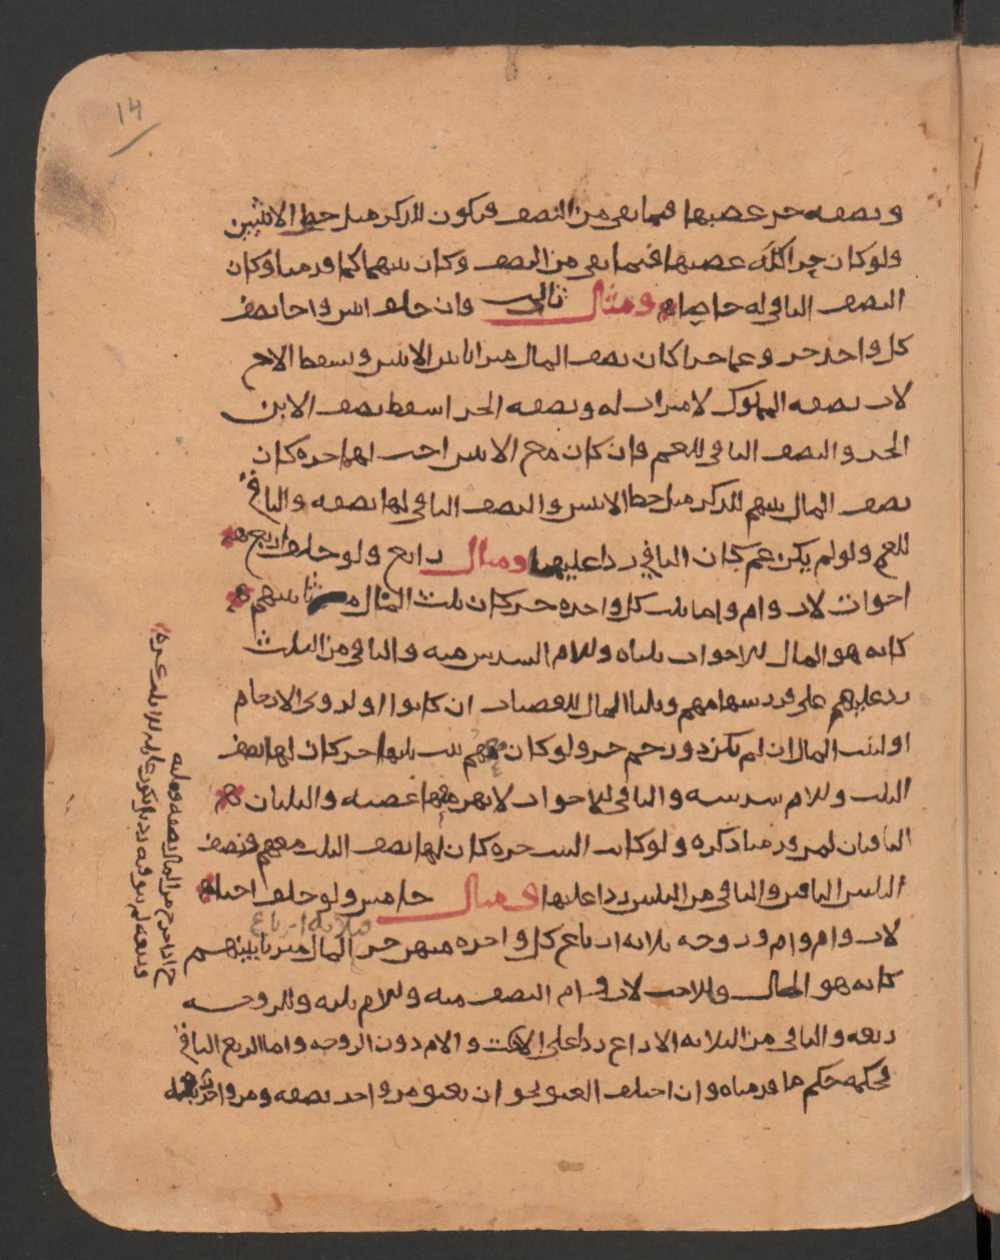 ١٤
ونصفه حر عصبها فيما بقى من النصف فيكون للذكر مثل حظ الانثيين
ولو كان حرا كله عصبها فيما بقى من النصف وكان بينهما كما قدمنا وكان
النصف الباقي له خاصا ومثال ثالث فان خلف ابنين واخا نصف
كل واحد حر وعما حرا كان نصف المال ميراثا بين الابنين ويسقط الاخ
لان نصفه المملوك لا ميراث له ونصفه الحر اسقط نصف الابن
الحر والنصف الباقي للعم فان كان مع الابنين اخت لهما حره كان
نصف المال بينهم للذكر مثل حظ الانثيين والنصف الباقي لها نصفه والباقي
للعم ولو لم يكن عم كان الباقي ردا عليها ومثال رابع ولو خلف اربع
اخوات لاب وام واما ثلث كل واحده حر كان ثلث المال بينهم
كانه هو المال للاخوات ثلثاه وللام السدس منه والباقي من الثلث
رد عليهم على قدر سهامهم وثلثا المال للعصبات ان كانوا او لذوي الارحام
او لبيت المال ان لم يكن ذو رحم حر ولو كان معهم بنت ثلثها حر كان لها نصف
الثلث وللام سدسه والباقي للاخوات لانهن معها عصبه والثلثان
الباقيان لمن قدمنا ذكره ولو كانت البنت حره كان لها نصف الثلث معهم ونصف
الثلثين الباقيين والباقي من الثلثين ردا عليها ومثال خامس ولو خلف اختا
لاب وام وام وزوجه ثلاثه ارباع كل واحده منهن حر المال ميراثا بينهم
فثلاثه ارباع
كانه هو المال وللاخت لاب وام النصف منه وللام ثلثه وللزوجه
ربعه والباقي من الثلاثه الارباع ردا على الاخت والام دون الزوجه واما الربع الباقي
فحكمه حكم ما قدمناه وان اختلف العتق نحو ان يعتق من واحد نصفه ومن واحد ثلثه